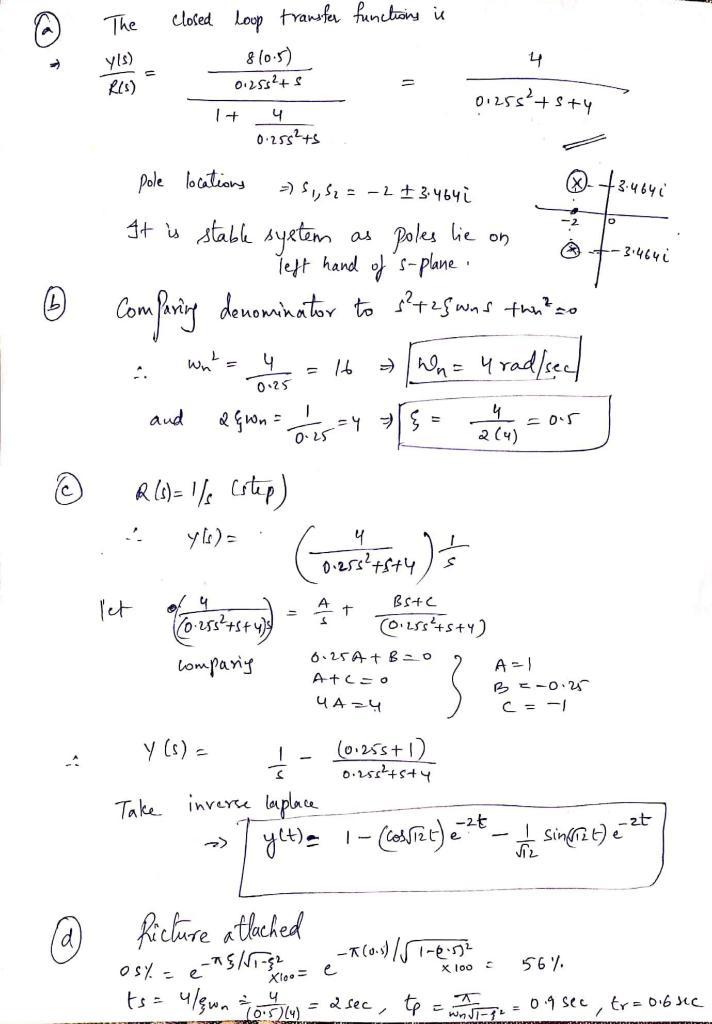 (a) The closed loop transfer functions is
→ Y(s)/R(s) = (8(0.5)/(0.25s²+s))/(1+ 4/(0.25s²+s)) = 4/(0.25s²+s+4)
Pole locations ⇒ s₁,s₂ = -2 ± 3.464i
3.464i
-2 0
-3.464i
It is stable system as poles lie on
left hand of s-plane.
(b) Comparing denominator to s²+2ξωns+ωn²=0
∴ ωn² = 4/0.25 = 16 ⇒ ωn = 4 rad/sec
and 2ξωn = 1/0.25 = 4 ⇒ ξ = 4/2(4) = 0.5
(c) R(s)=1/s (step)
∴ Y(s) = (4/(0.25s²+s+4)) 1/s
let 4/((0.25s²+s+4)s) = A/s + (Bs+C)/(0.25s²+s+4)
comparing 0.25A+B=0
A+C=0
4A=4
A=1
B=-0.25
C=-1
∴ Y(s) = 1/s - (0.25s+1)/(0.25s²+s+4)
Take inverse laplace
⇒ y(t) = 1-(cos√12t)e^-2t - 1/√12 sin(√12t)e^-2t
(d) Picture attached
OS% = e^-πξ/√1-ξ² ×100 = e^-π(0.5)/√1-(0.5)² ×100 = 56%
ts = 4/ξωn = 4/(0.5)(4) = 2 sec, tp = π/ωn√1-ξ² = 0.9 sec, tr = 0.6 sec